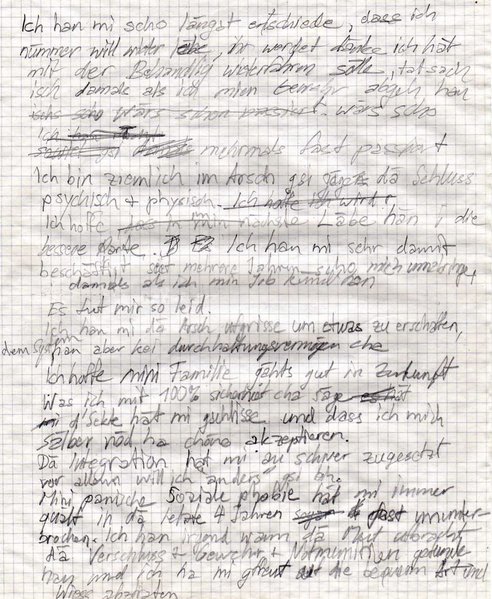 Ich han mi scho längst entschiede, dass ich
nümmer will witter lebe, ihr werdet dänke ich hät
mit der Behandlig witerfahren sölle, tatsach
isch damals als ich mien Gewehr abgeh han
wärs scho
Ich
mehrmals fast passiert
Ich bin ziemlich im Arsch gsi gäge da Schluss
psychisch + physisch. Ich hoffe
Ich hoffe in min nächste Läbe han i die
bessere Karte. Ich han mi sehr damit
beschäftigt seit mehrere Jahren scho mich umzbringe,
damals als ich min Job kündt han
Es tut mir so leid.
Ich han mi dä Arsch ufgrisse um etwas zu erschaffen,
dem System han aber kei durchhaltungsvermögen cha
Ich hoffe mini Familie gahts gut in Zurkunft
Was ich mit 100% sicherheit cha säge
d'Sekte hät mi gschisse und dass ich mich
sälber nöd ha chöne akzeptieren.
Dä Integration hät mi au schwer zugesetzt
vor allem will ich "anders" gsi bin.
Mini panische Soziale phobie hät mi immer
quält in dä letzte 4 Jahren fast ununder-
brochen. Ich han irgend wann dä Mut
dä Verschluss + Gewehr + Notmunition
han und ich ha mi gfreut uf die bequem Art und
Wiess abzträten